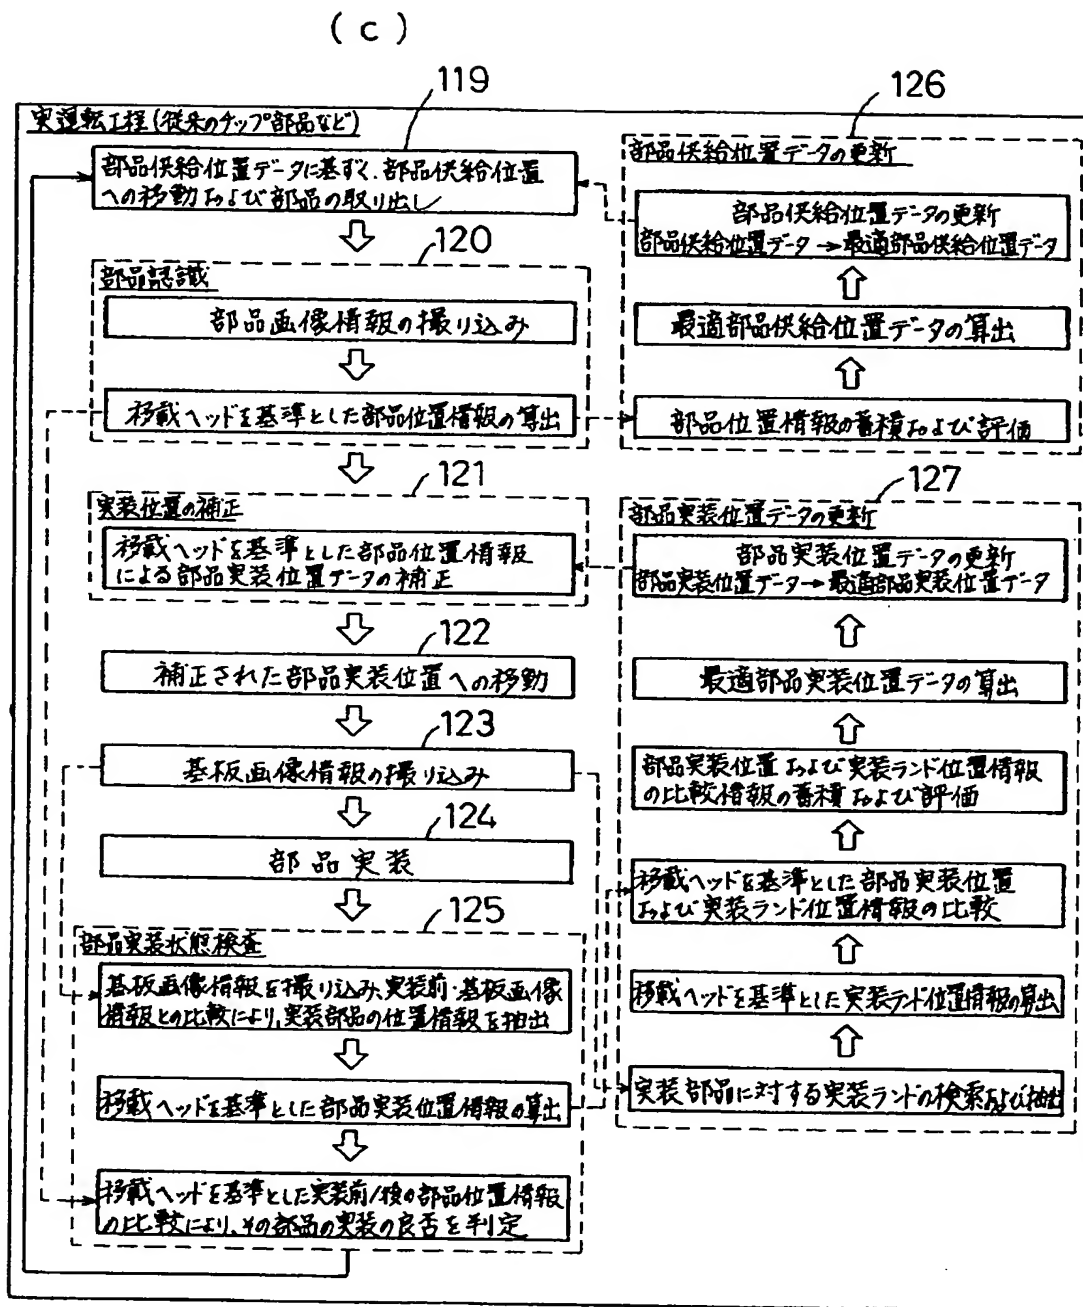 (c)
119
実運転工程(従来のチップ部品など)
部品供給位置データに基ずく、部品供給位置
への移動および部品の取り出し
120
部品認識
部品画像情報の撮り込み
移載ヘッドを基準とした部品位置情報の算出
121
実装位置の補正
移載ヘッドを基準とした部品位置情報
による部品実装位置データの補正
122
補正された部品実装位置への移動
123
基板画像情報の撮り込み
124
部品実装
125
部品実装状態検査
基板画像情報を撮り込み、実装前・基板画像
情報との比較により、実装部品の位置情報を抽出
移載ヘッドを基準とした部品実装位置情報の算出
移載ヘッドを基準とした実装前/後の部品位置情報
の比較により、その部品の実装の良否を判定
126
部品供給位置データの更新
部品供給位置データの更新
部品供給位置データ→最適部品供給位置データ
最適部品供給位置データの算出
部品位置情報の蓄積および評価
127
部品実装位置データの更新
部品実装位置データの更新
部品実装位置データ→最適部品実装位置データ
最適部品実装位置データの算出
部品実装位置および実装ランド位置情報
の比較情報の蓄積および評価
移載ヘッドを基準とした部品実装位置
および実装ランド位置情報の比較
移載ヘッドを基準とした実装ランド位置情報の算出
実装部品に対する実装ランドの検索および抽出